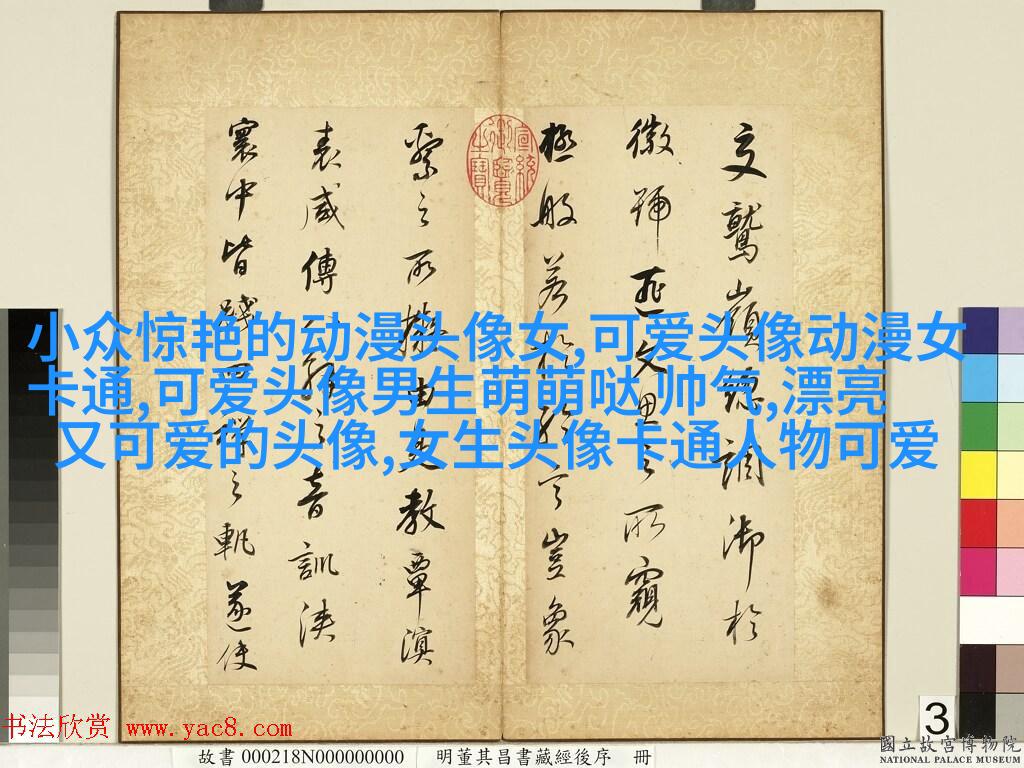 鷲嶺調御於
徽號匪文思之所窺
極般若於言豈象
繫之所擬由是教覃溟
表咸傳之音訓浹
寰中皆踐四禪之軌遂使
小众惊艳的动漫头像女,可爱头像动漫女
卡通,可爱头像男生萌萌哒 帅气,漂亮
又可爱的头像,女生头像卡通人物可爱
3
书法欣赏 www.yac8.com
故書 000218N000000000
明董其昌書藏經後序 冊
國立故宮博物院
NATIONAL PALACE MUSEUM